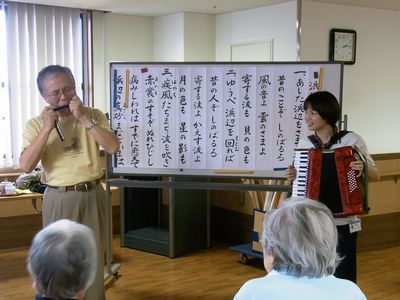 浜辺
一、あした浜辺をさ
昔のことぞ しのばるる
風の音よ 雲のさまよ
寄する波も 貝の色も
二、ゆうべ浜辺を回れば
昔の人ぞ しのばるる
寄する波よ かえす波よ
月の色も 星の影も
三、疾風たちまち 波を吹き
赤裳のすそぞ ぬれひじし
病みしわれは すでに癒えて
浜辺の真砂